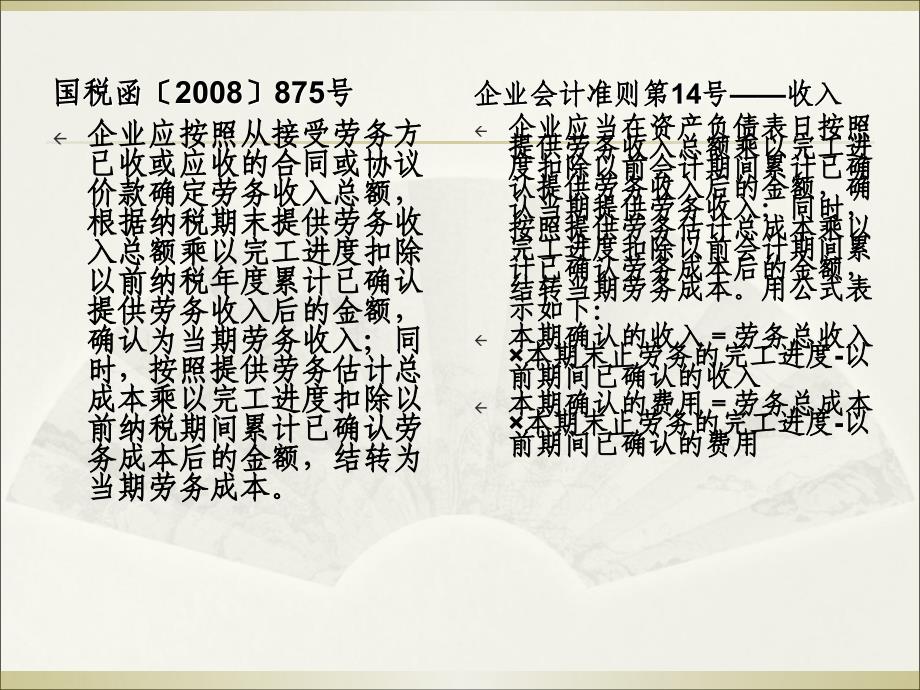 国税函〔2008〕875号
企业应按照从接受劳务方
已收或应收的合同或协议
价款确定劳务收入总额，
根据纳税期末提供劳务收
入总额乘以完工进度扣除
以前纳税年度累计已确认
提供劳务收入后的金额，
确认为当期劳务收入；同
时，按照提供劳务估计总
成本乘以完工进度扣除以
前纳税期间累计已确认劳
务成本后的金额，结转为
当期劳务成本。
企业会计准则第14号——收入
企业应当在资产负债表日按照
提供劳务收入总额乘以完工进
度扣除以前会计期间累计已确
认提供劳务收入后的金额，确
认当期提供劳务收入；同时，
按照提供劳务估计总成本乘以
完工进度扣除以前会计期间累
计已确认劳务成本后的金额，
结转当期劳务成本。用公式表
示如下：
本期确认的收入＝劳务总收入
×本期末止劳务的完工进度-以
前期间已确认的收入
本期确认的费用＝劳务总成本
×本期末止劳务的完工进度-以
前期间已确认的费用